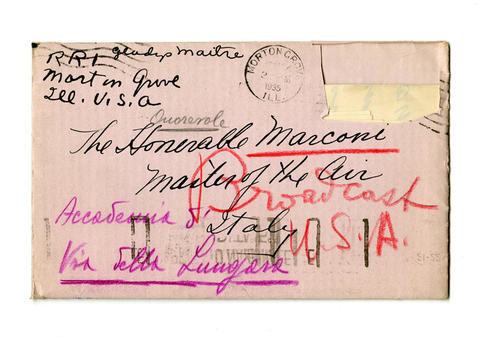 Gladys Maitre
RR1
Morton Grove
Ill. U.S.A
MORTON GROVE
1935
ILL.
Onorevole
The Honerable Marconi
Master of the Air
Broadcast
Italy
U.S.A.
Accademia d'
Via della Lungara